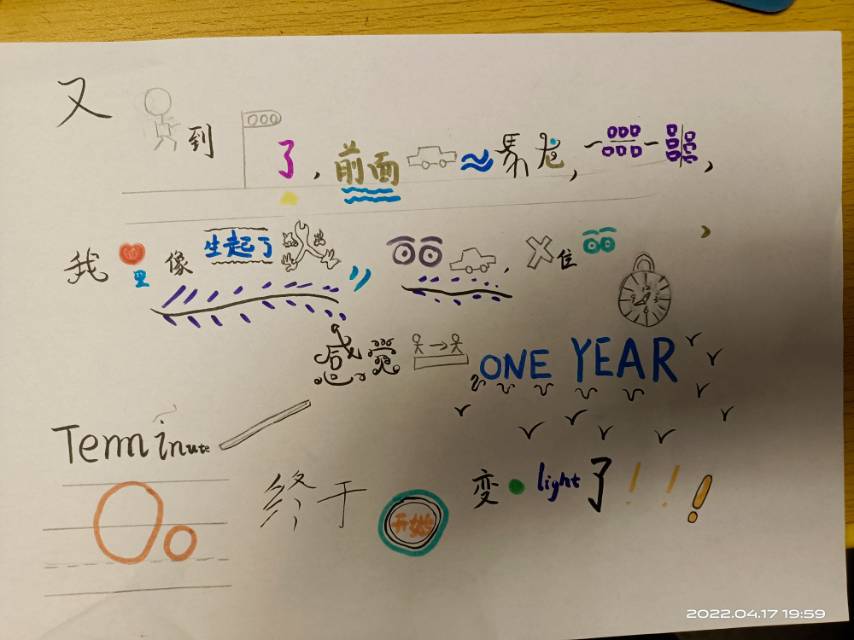 又 到 了，前面 ≈ 易龙，一 一，
我 里 像 生起了 ，， 住
感觉 ONE YEAR
Teminute
O。 终于 开始 变 light了！！！
2022.04.17 19:59